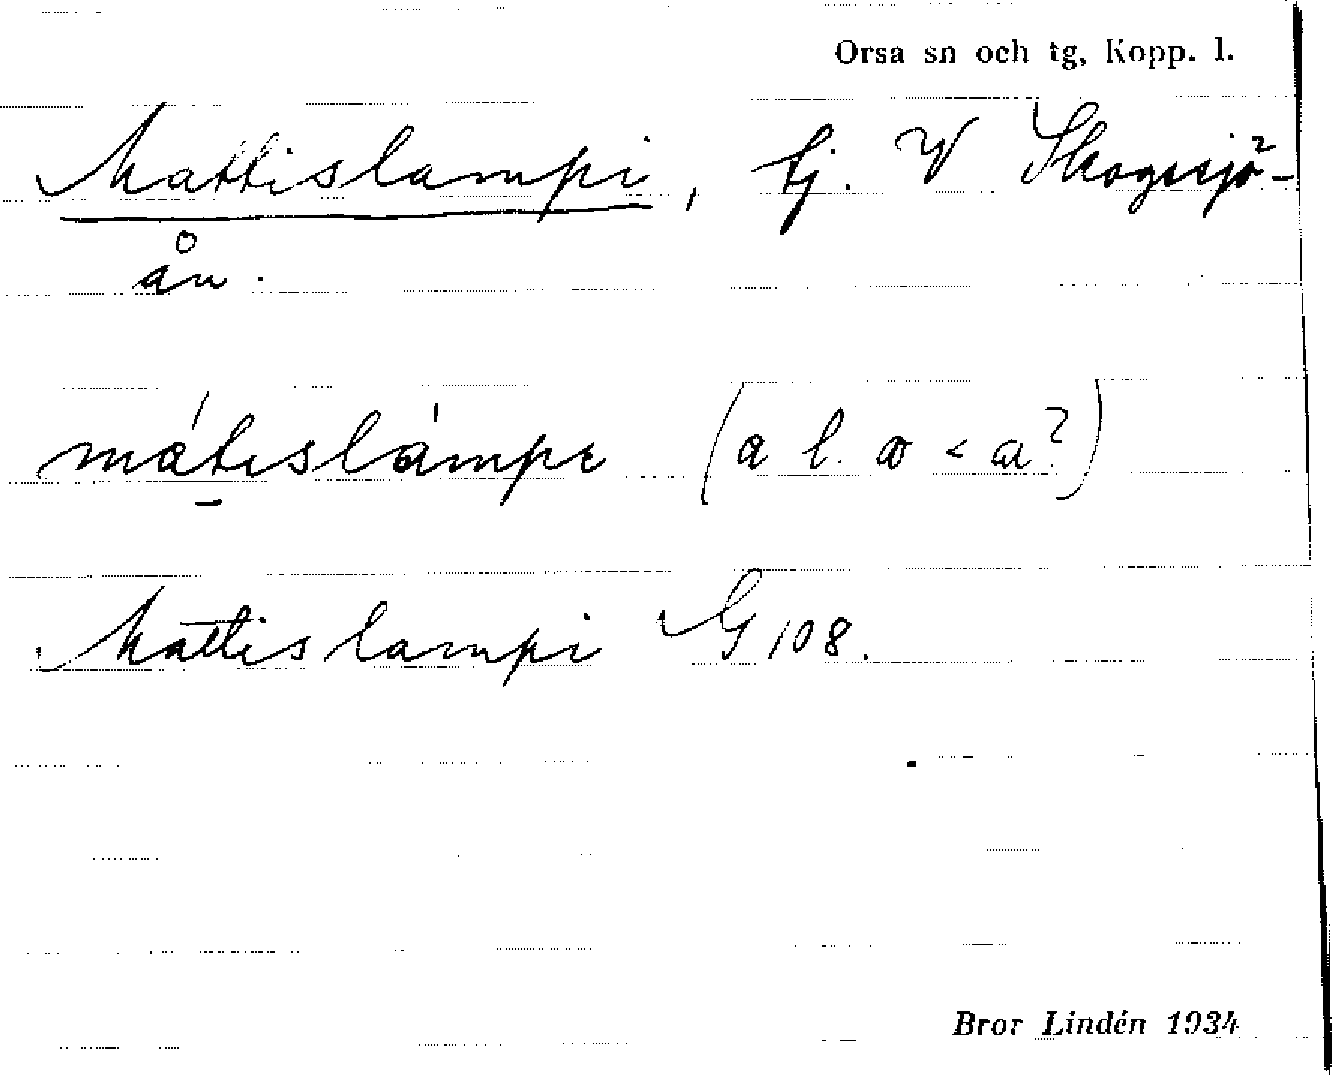 Orsa sn och tg, Kopp. l.
Mattislampi, tj. V Skogssjö-
ån.
mátislámpi (a l. ɑ < a?)
Mattislampi G 108.
Bror Lindén 1934